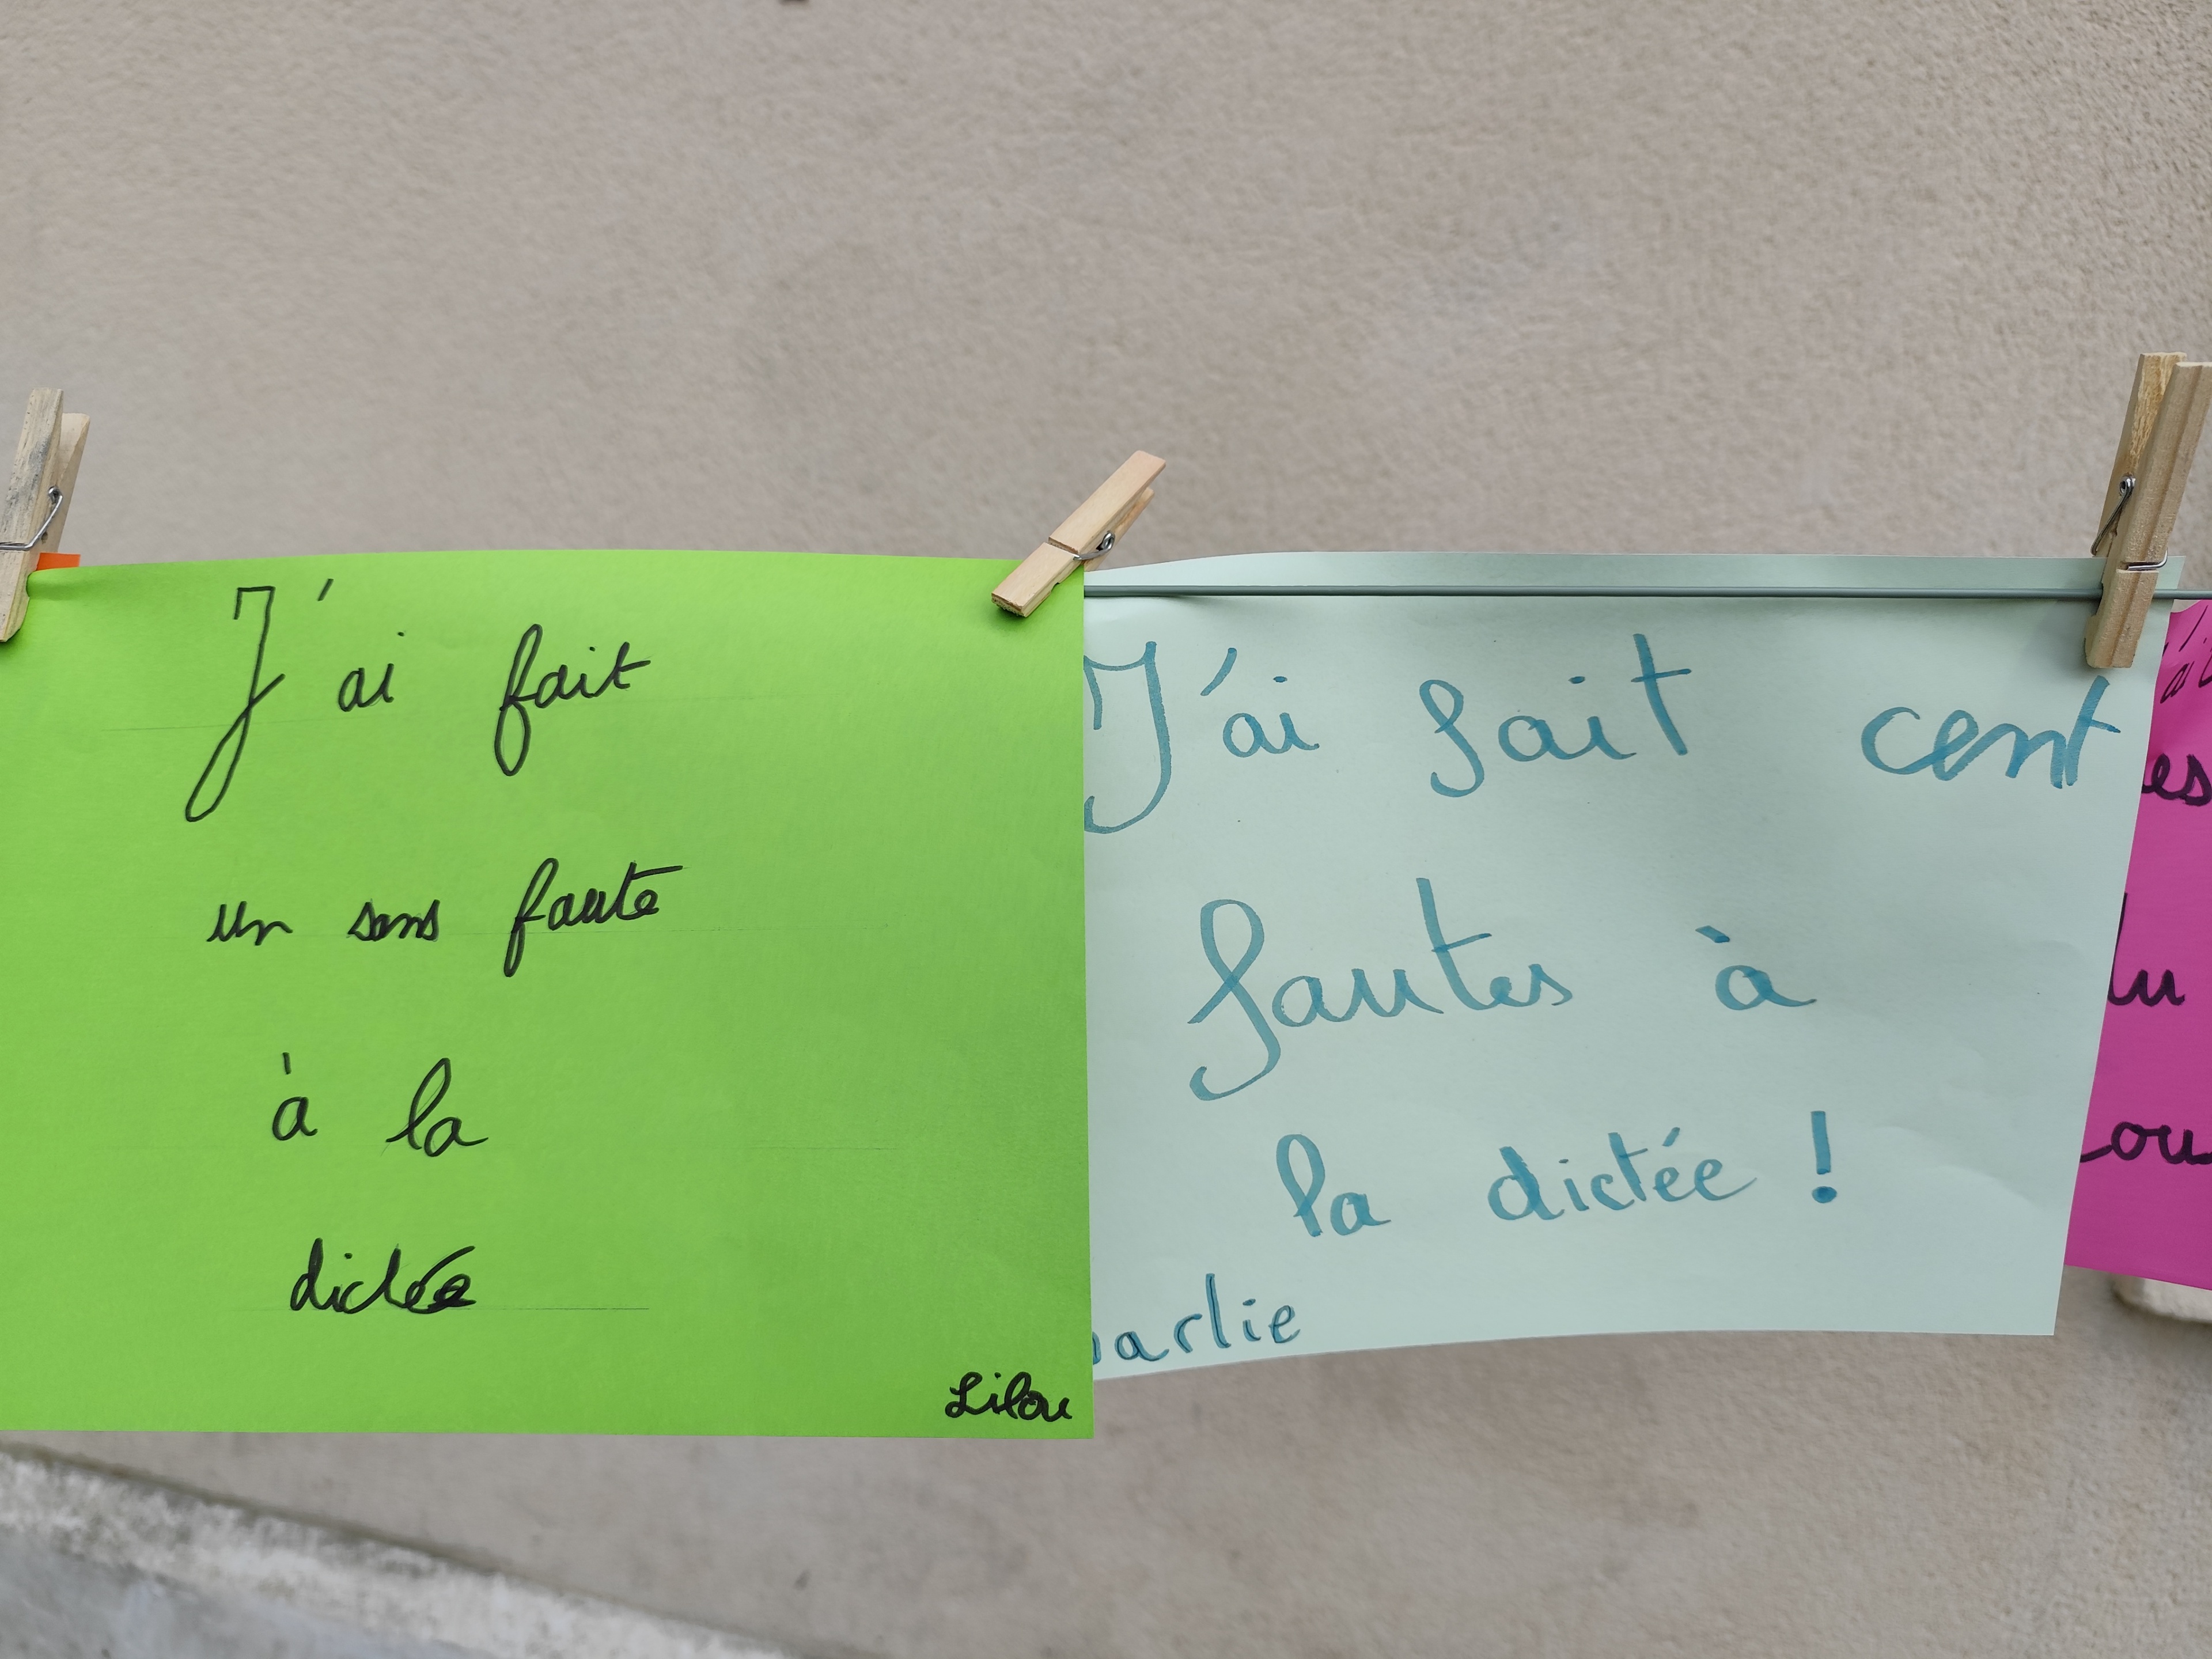 J'ai fait
un sans faute
à la
dictée
Lilou
J'ai fait cent
fautes à
la dictée !
arlie
es
lu
ou